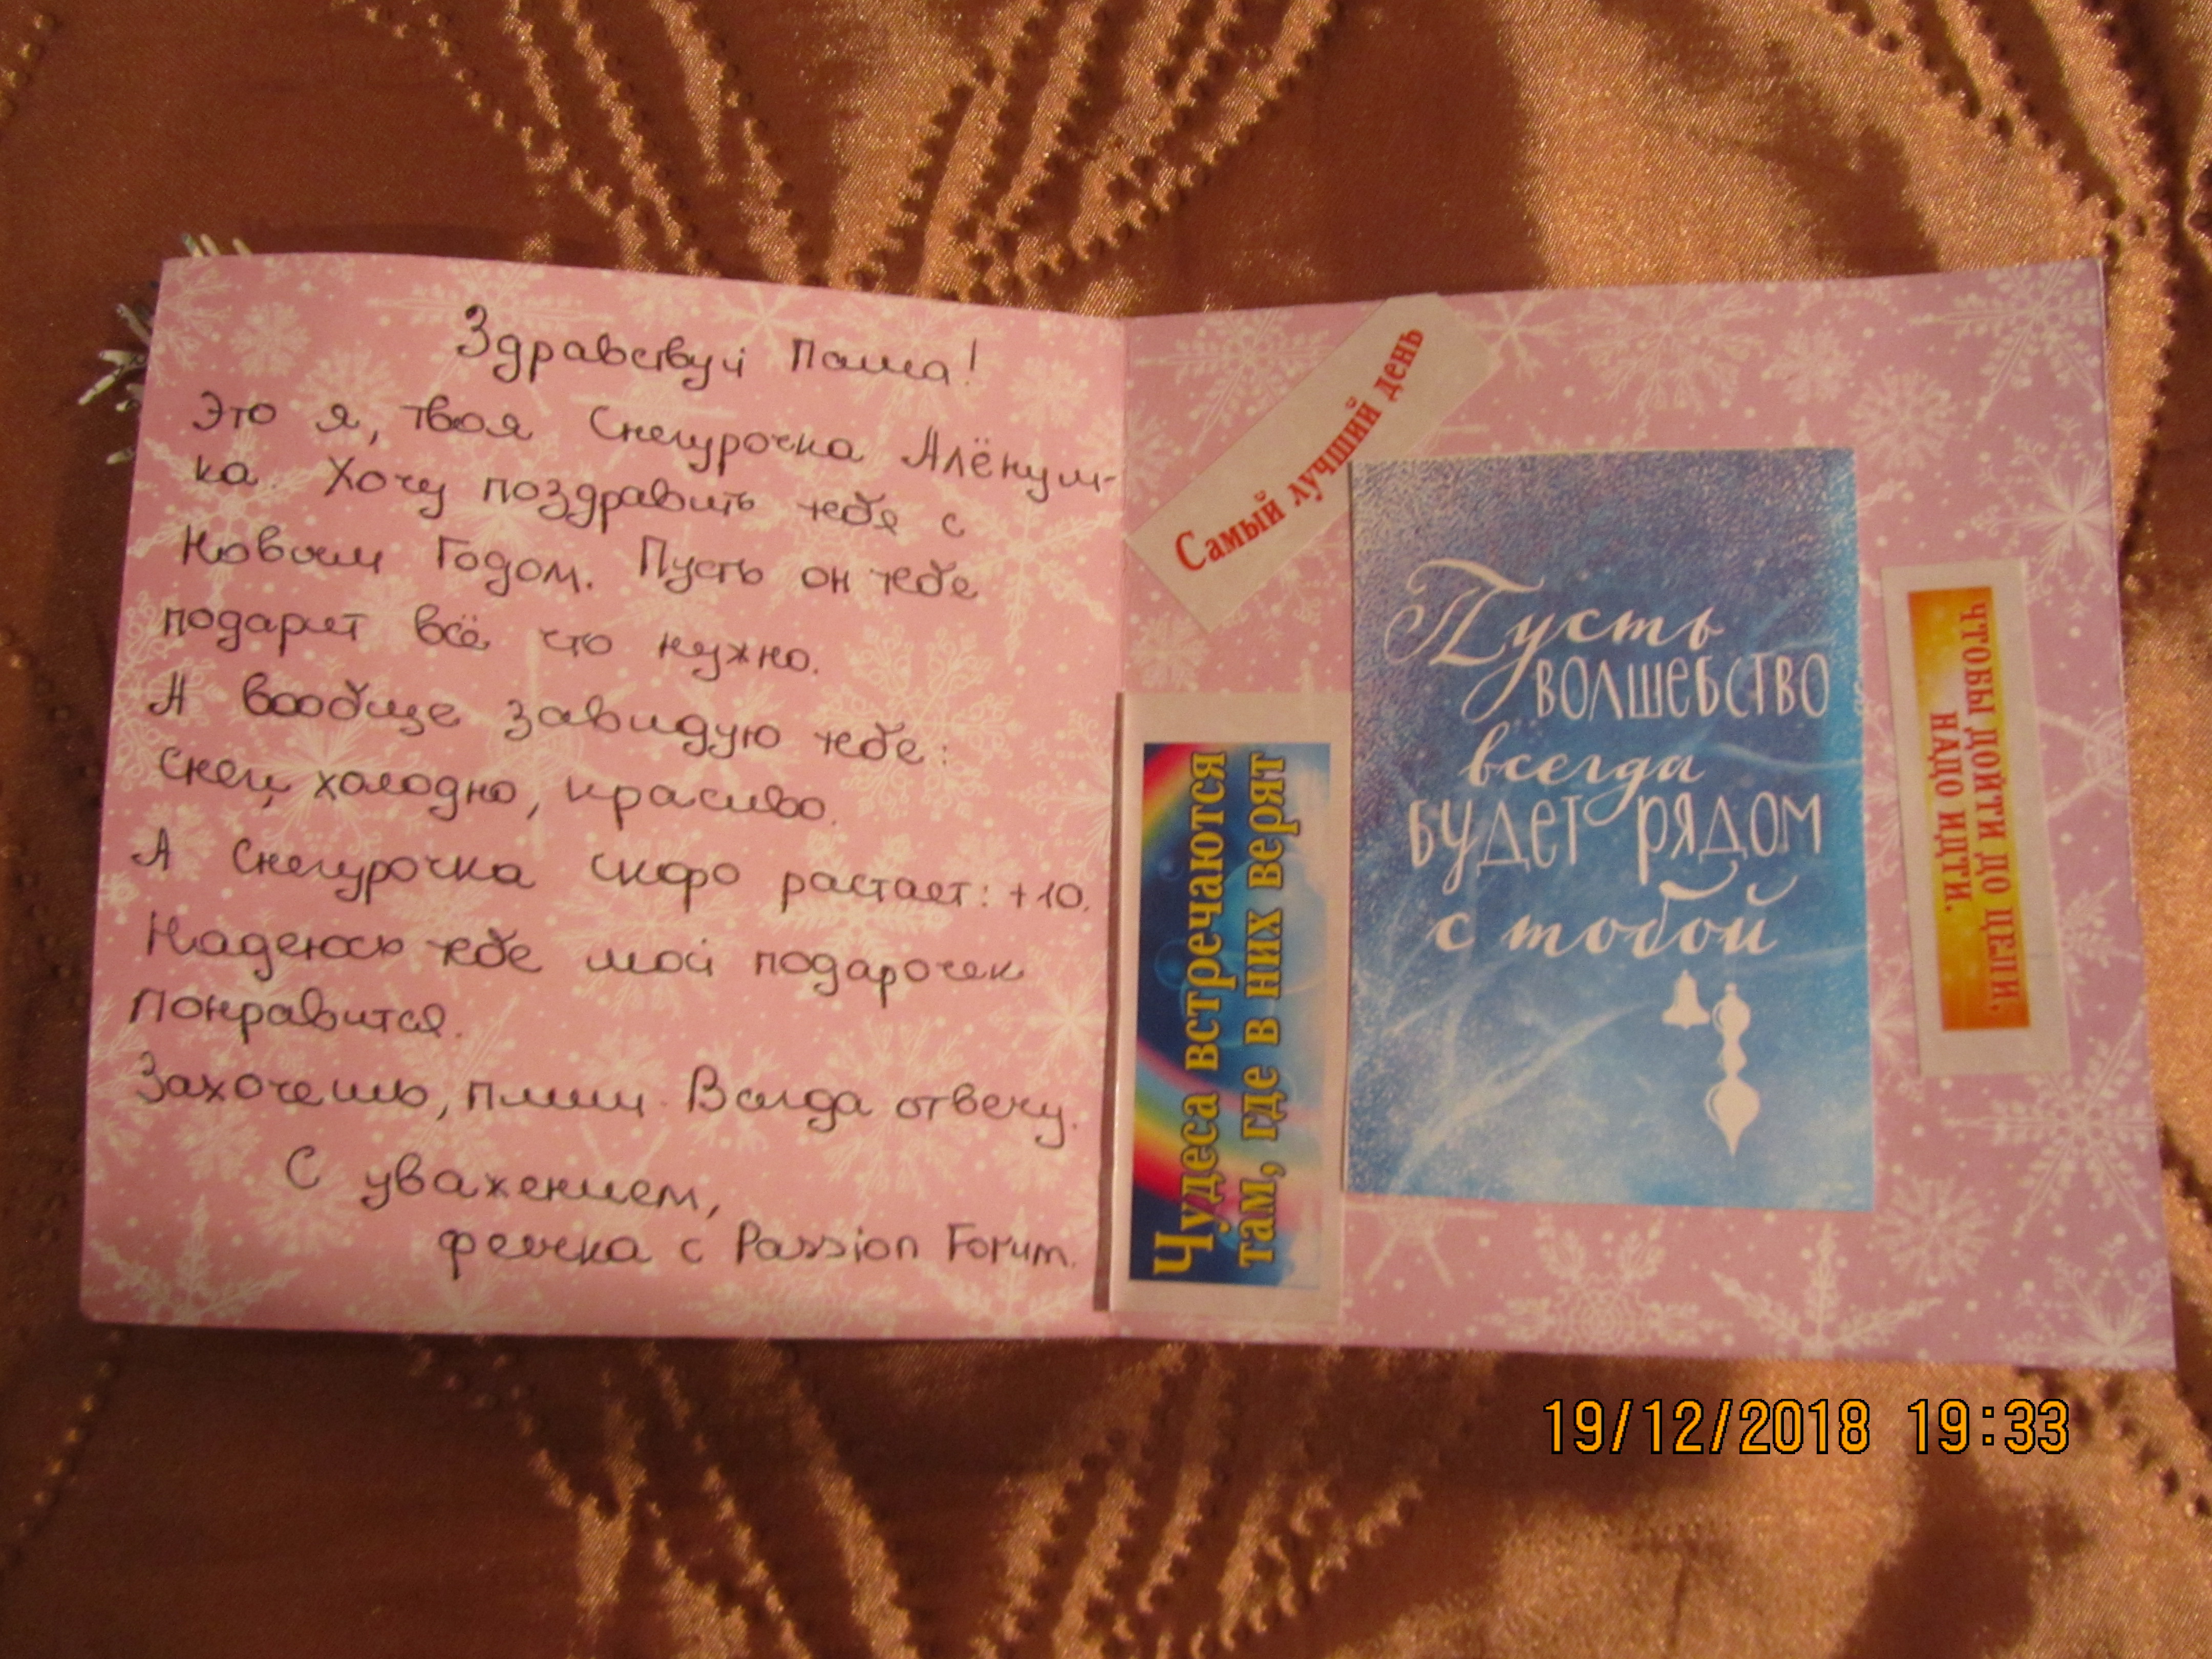 Здравствуй Паша!
Это я, твоя Снегурочка Алёнуш-
ка. Хочу поздравить тебя с
Новым Годом. Пусть он тебе
подарит всё что нужно.
А вообще завидую тебе:
снег, холодно, красиво.
А Снегурочка скоро растает: +10.
Надеюсь тебе мой подарочек
понравится.
Захочешь, пиши. Всегда отвечу.
С уважением,
феечка с Passion Forum.
Самый лучший день
Чудеса встречаются
там, где в них верят
Пусть
волшебство
всегда
будет рядом
с тобой
ЧТОБЫ ДОЙТИ ДО ЦЕЛИ,
НАДО ИДТИ.
19/12/2018 19:33